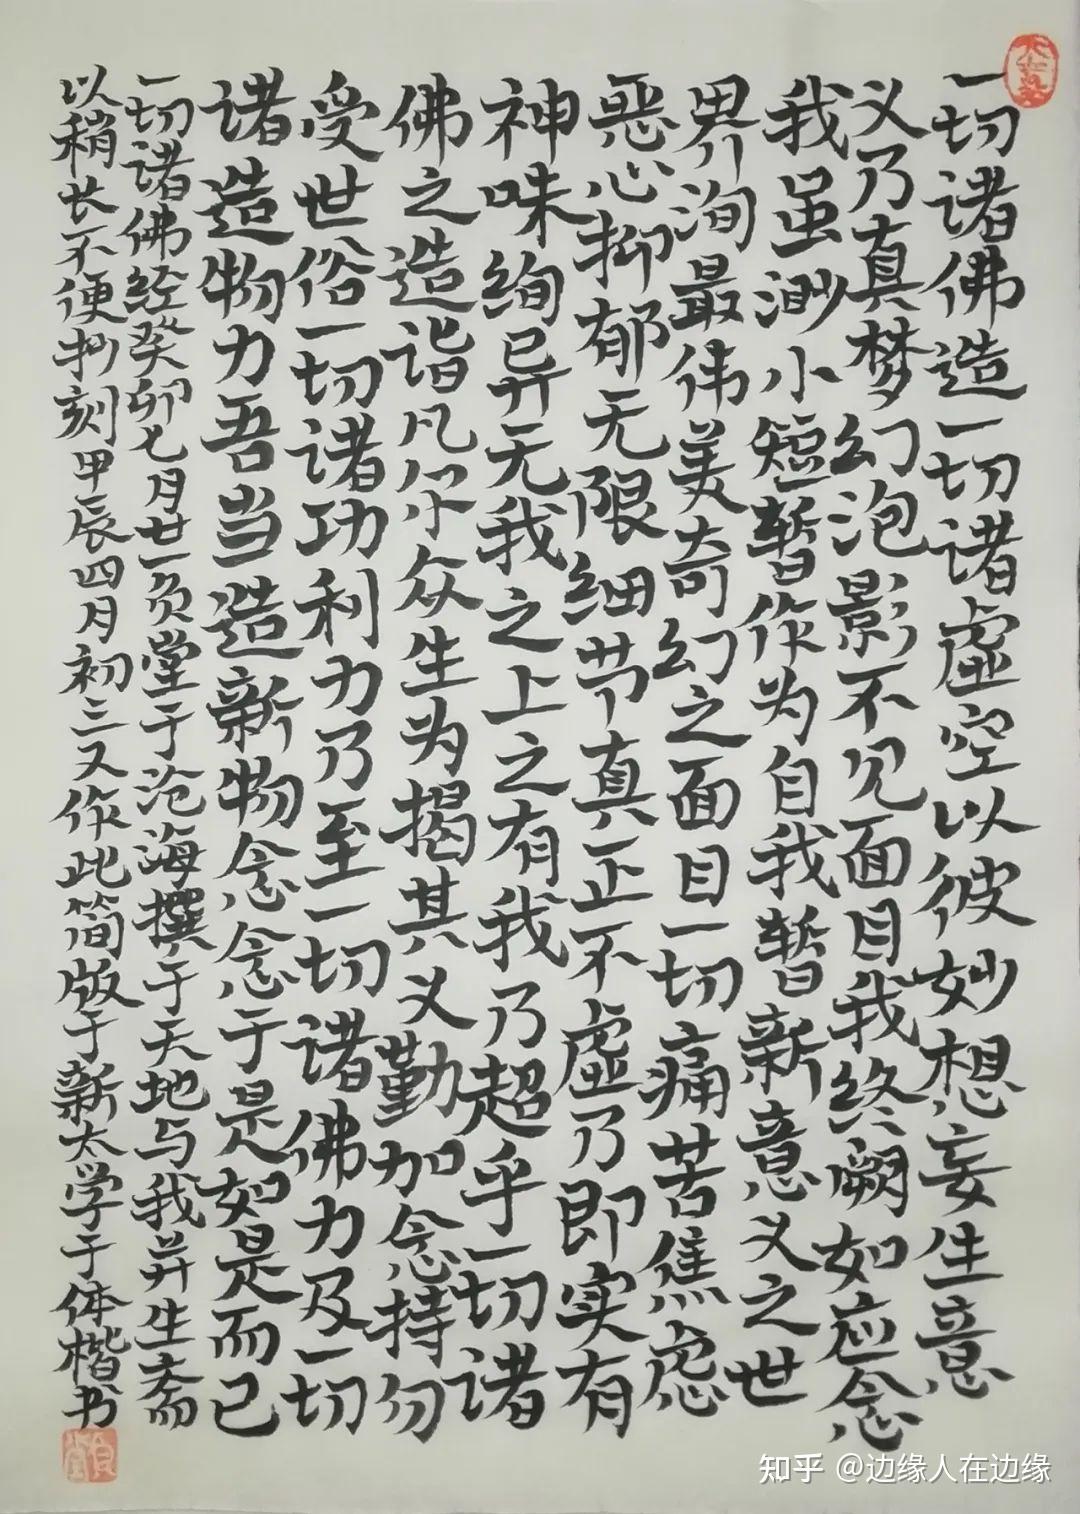 一切诸佛造一切诸虚空以彼妙想妄生意
义乃真梦幻泡影不见面目我终阙如应念
我虽渺小短暂作为自我暂新意义之世
界洵最伟美奇幻之面目一切痛苦焦虑
恶心抑郁无限细节真正不虚乃即实有
神味绚异无我之上之有我乃超乎一切诸
佛之造诣凡小众生为揭其义勤加念持勿
受世俗一切诸功利力乃至一切诸佛力及一切
诸造物力吾当造新物念念于是如是而已
一切诸佛经癸卯七月廿一负堂于沧海撰于天地与我并生斋
以稍长不便抄刻甲辰四月初三又作此简版于新太学于体楷书
负堂
知乎 @边缘人在边缘